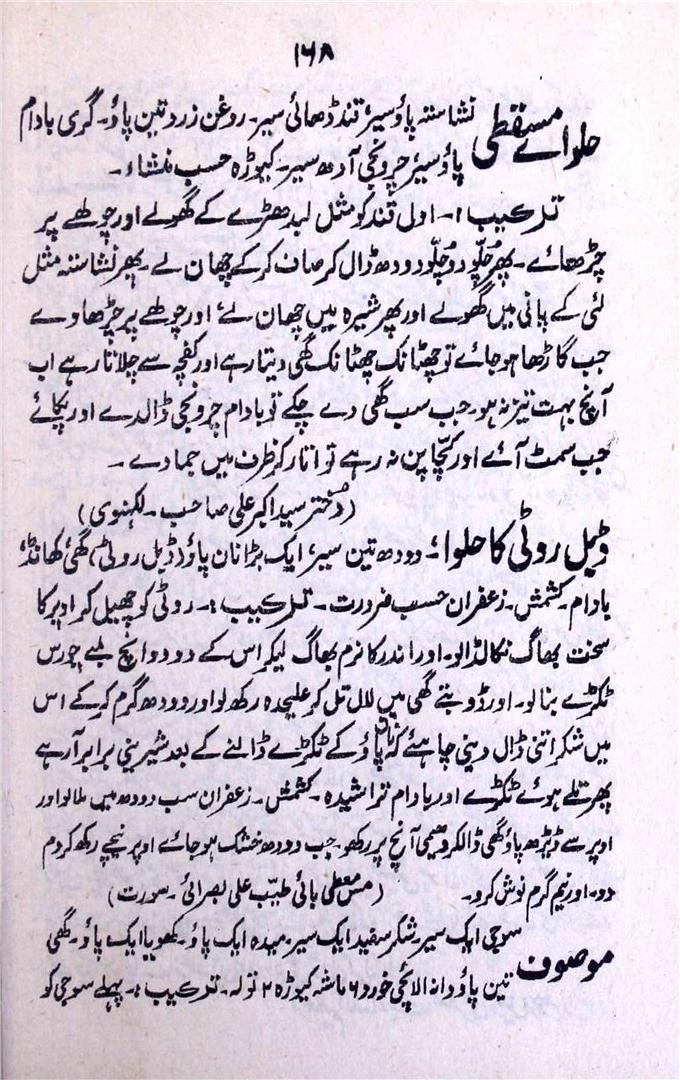 ۱۶۸
حلوائے مسقطی نشاستہ پاؤ سیر، قند ڈھائی سیر۔ روغن زرد تین پاؤ۔ گری بادام
پاؤ سیر، چرونچی آدھ سیر۔ کیوڑہ حسب منشاء۔
ترکیب:۔ اول قند کو مثل لبدھڑے کے گھولے اور چولھے پر
چڑھائے۔ پھر چلّو دو چلّو دودھ ڈال کر صاف کر کے چھان لے۔ پھر نشاستہ مثل
لئی کے پانی میں گھولے اور پھر شیرہ میں چھان لے، اور چولھے پر چڑھا دے
جب گاڑھا ہو جائے تو چھٹانک چھٹانک گھی دیتا رہے اور کفچہ سے چلاتا رہے اب
آنچ بہت تیز نہ ہو۔ جب سب گھی دے چکے تو بادام چرونچی ڈالدے اور پکائے
جب سمٹ آئے اور کچّا پن نہ رہے تو اتار کر ظرف میں جما دے۔
(دختر سید اکبر علی صاحب۔ لکہنوی)
ڈبل روٹی کا حلوا:۔ دودھ تین سیر، ایک بڑا نان پاؤ (ڈبل روٹی) گھی، کھانڈ،
بادام۔ کشمش۔ زعفران حسب ضرورت۔ ترکیب:۔ روٹی کو چھیل کر اوپر کا
سخت بھاگ نکال ڈالو۔ اور اندر کا نرم بھاگ لیکر اس کے دو دو انچ لمبے چورس
ٹکڑے بنا لو۔ اور ڈوبتے گھی میں لال تل کر علیحدہ رکھ لو اور دودھ گرم کر کے اس
میں شکر اتنی ڈال دینی چاہئے کہ نان پاؤ کے ٹکڑے ڈالنے کے بعد شیرینی برابر آ رہے
پھر تلے ہوئے ٹکڑے اور بادام تراشیدہ۔ کشمش۔ زعفران سب دودھ میں ملا لو اور
اوپر سے ڈیڑھ پاؤ گھی ڈالکر دھیمی آنچ پر رکھو۔ جب دودھ خشک ہو جائے اوپر نیچے رکھ کر دم
دو۔ اور نیم گرم نوش کرو۔ (مس معطی بائی طیّب علی بصرائی۔ سورت)
موصوف سوجی ایک سیر، شکر سفید ایک سیر۔ میدہ ایک پاؤ۔ کھویا ایک پاؤ۔ گھی
تین پاؤ، دانہ الائچی خورد ۶ ماشہ کیوڑہ ۲ تولہ۔ ترکیب:۔ پہلے سوجی کو